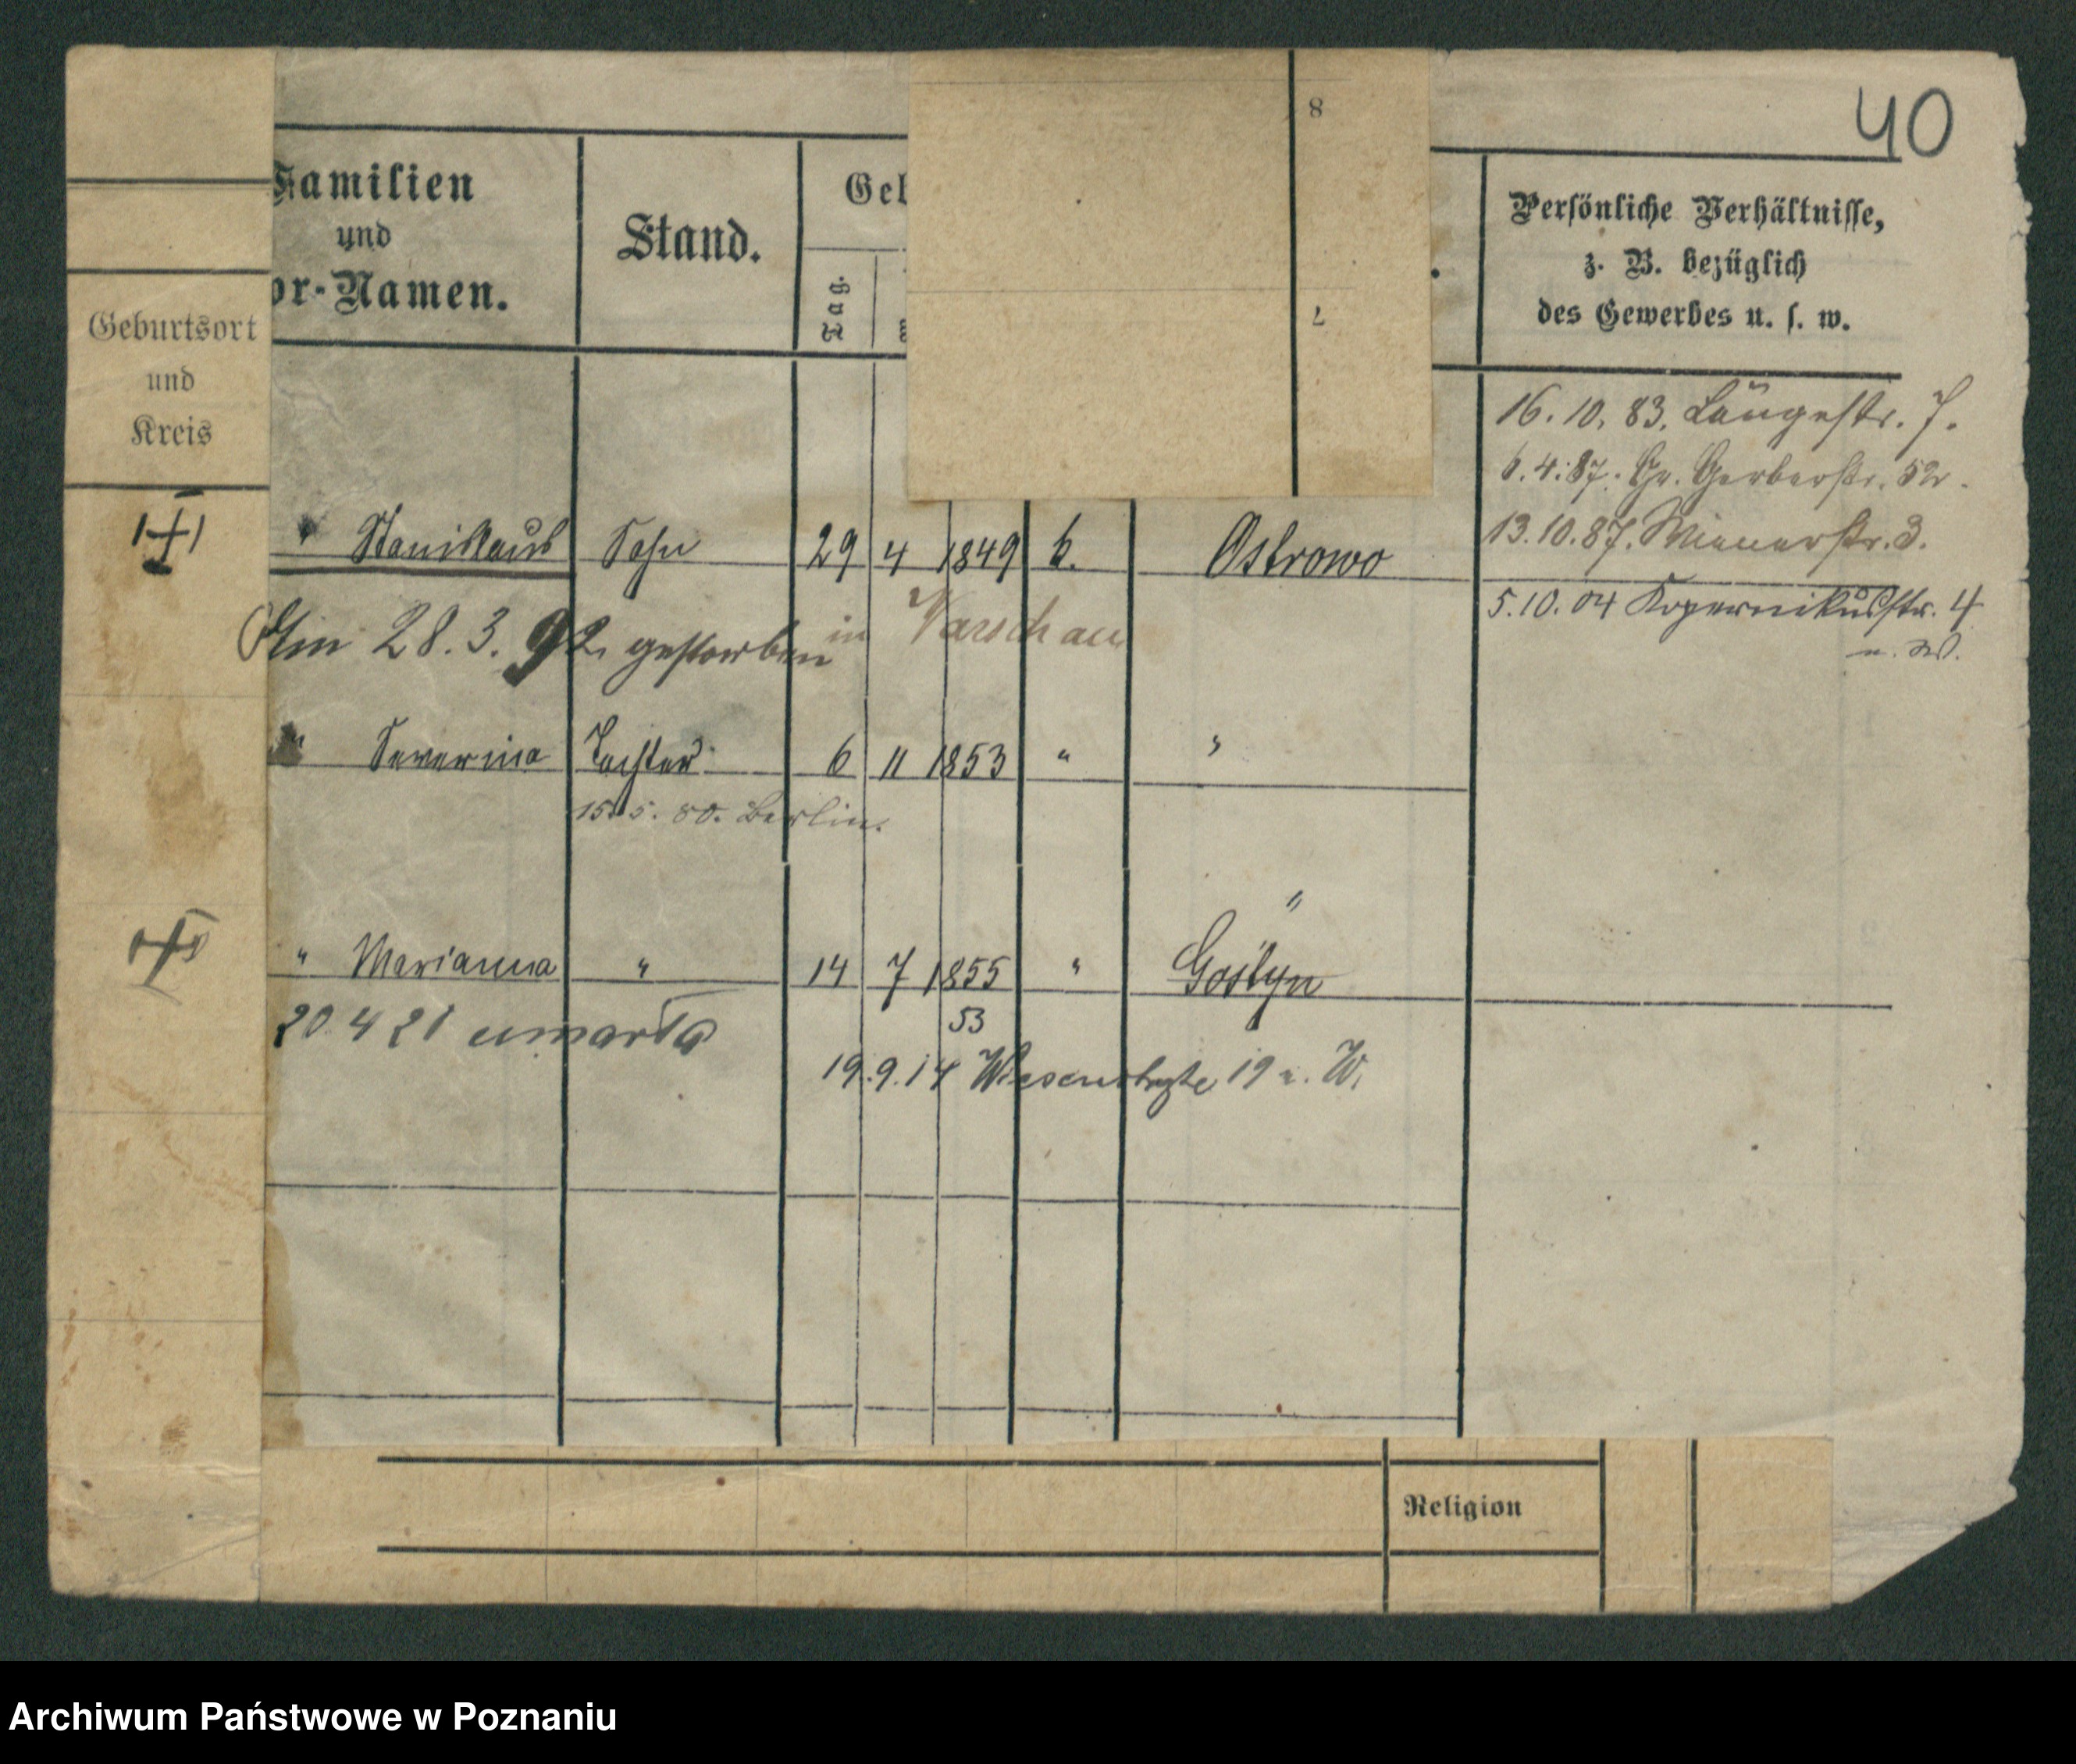 40
8
7
Familien
und
or-Namen.
Stand.
Geb
Tag.
Persönliche Verhältnisse,
z. B. bezüglich
des Gewerbes u. s. w.
Geburtsort
und
Kreis
16. 10. 83. Langestr. 7.
6. 4. 87. Gr. Gerberstr. 52.
13. 10. 87. Wienerstr. 3.
5. 10. 04 Kopernikusstr. 4
" Stanislaus Sohn 29 4 1849 k. Ostrowo
Am 28. 3. 92 gestorben in Warschau
" Severina Tochter 6 11 1853 " "
15. 5. 80. Berlin.
"
" Marianna " 14 7 1855 " Gostyn
53
20 4 21 umarła
19. 9. 14 Wiesenstraße 19 b. W.
Religion
Archiwum Państwowe w Poznaniu